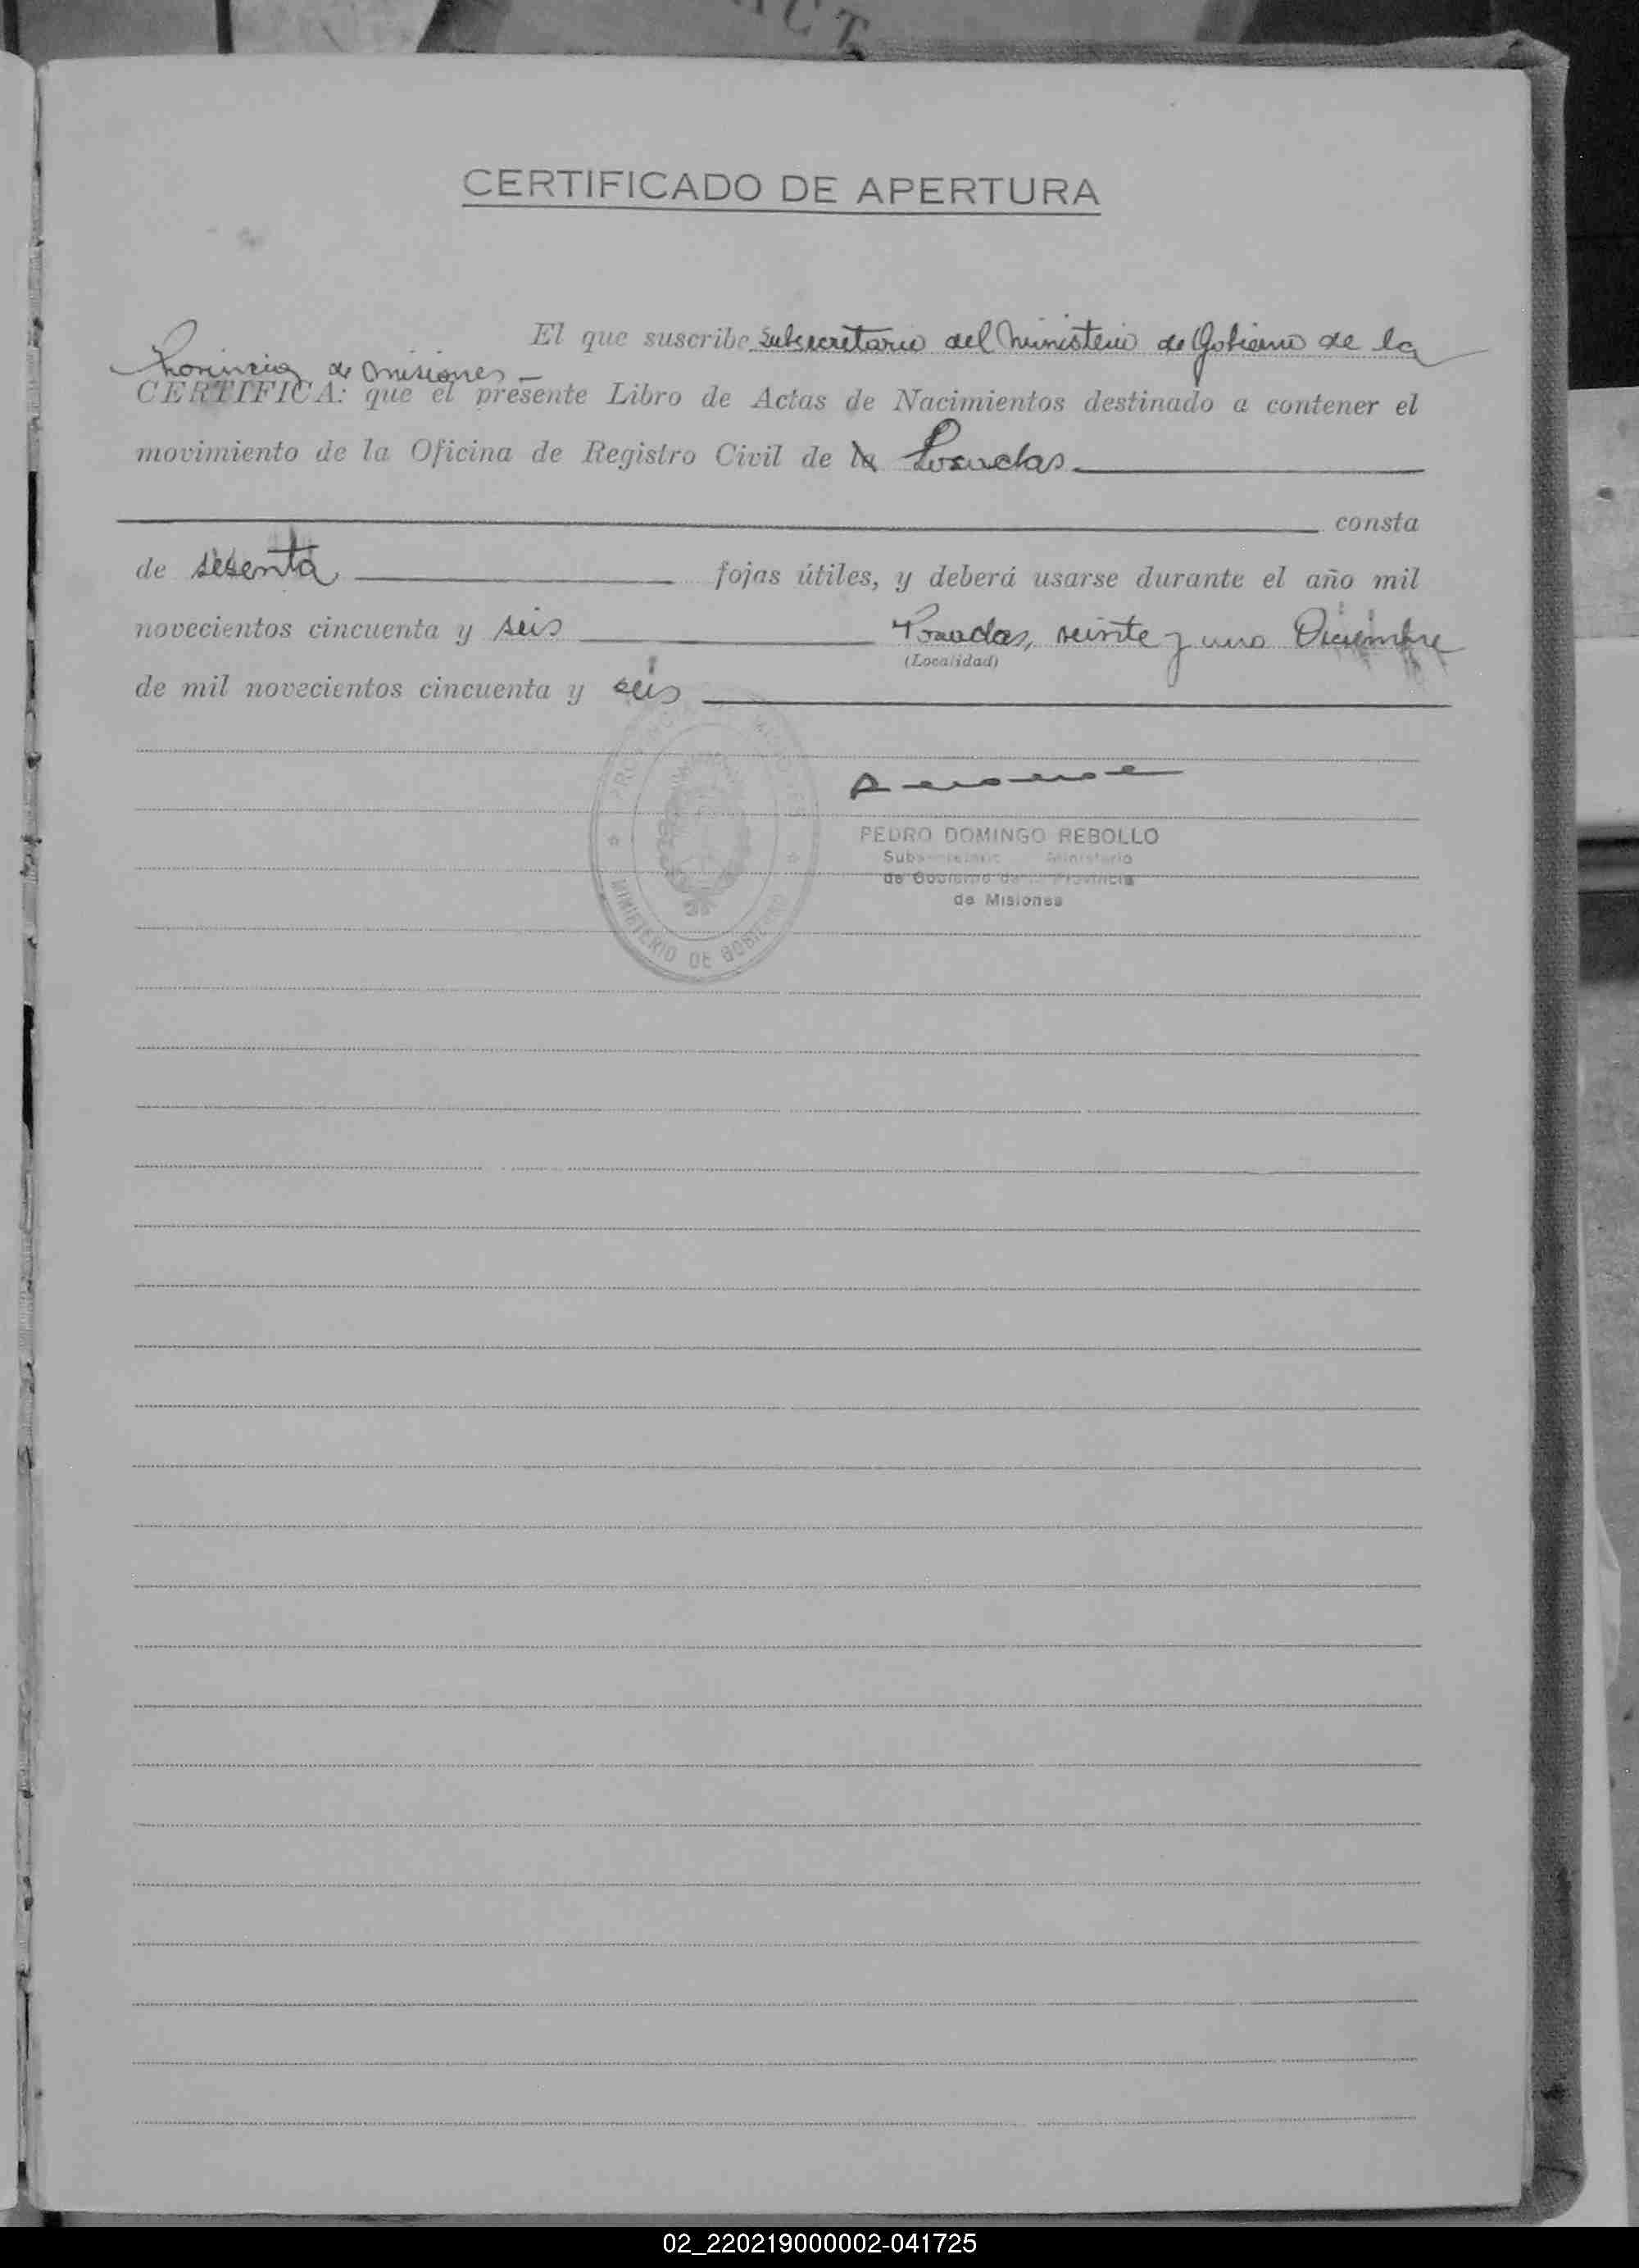 ACT
CERTIFICADO DE APERTURA
El que suscribe Subsecretario del Ministerio de Gobierno de la
Provincia de Misiones
CERTIFICA: que el presente Libro de Actas de Nacimientos destinado a contener el
movimiento de la Oficina de Registro Civil de la Posadas
consta
de sesenta fojas útiles, y deberá usarse durante el año mil
novecientos cincuenta y seis Posadas, veinte y uno Diciembre
(Localidad)
de mil novecientos cincuenta y seis
PEDRO DOMINGO REBOLLO
Subsecretario Ministerio
de Gobierno de Provincia
de Misiones
MINISTERIO DE GOBIERNO
02_220219000002-041725